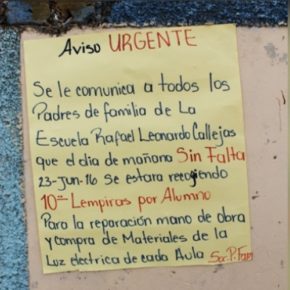 Aviso URGENTE
Se le comunica a todos los
Padres de familia de La
Escuela Rafael Leonardo Callejas
que el dia de mañana Sin Falta
23-Jun-16 Se estara recogiendo
10 Lempiras por Alumno
Para la reparación mano de obra
y compra de Materiales de la
Luz electrica de cada Aula